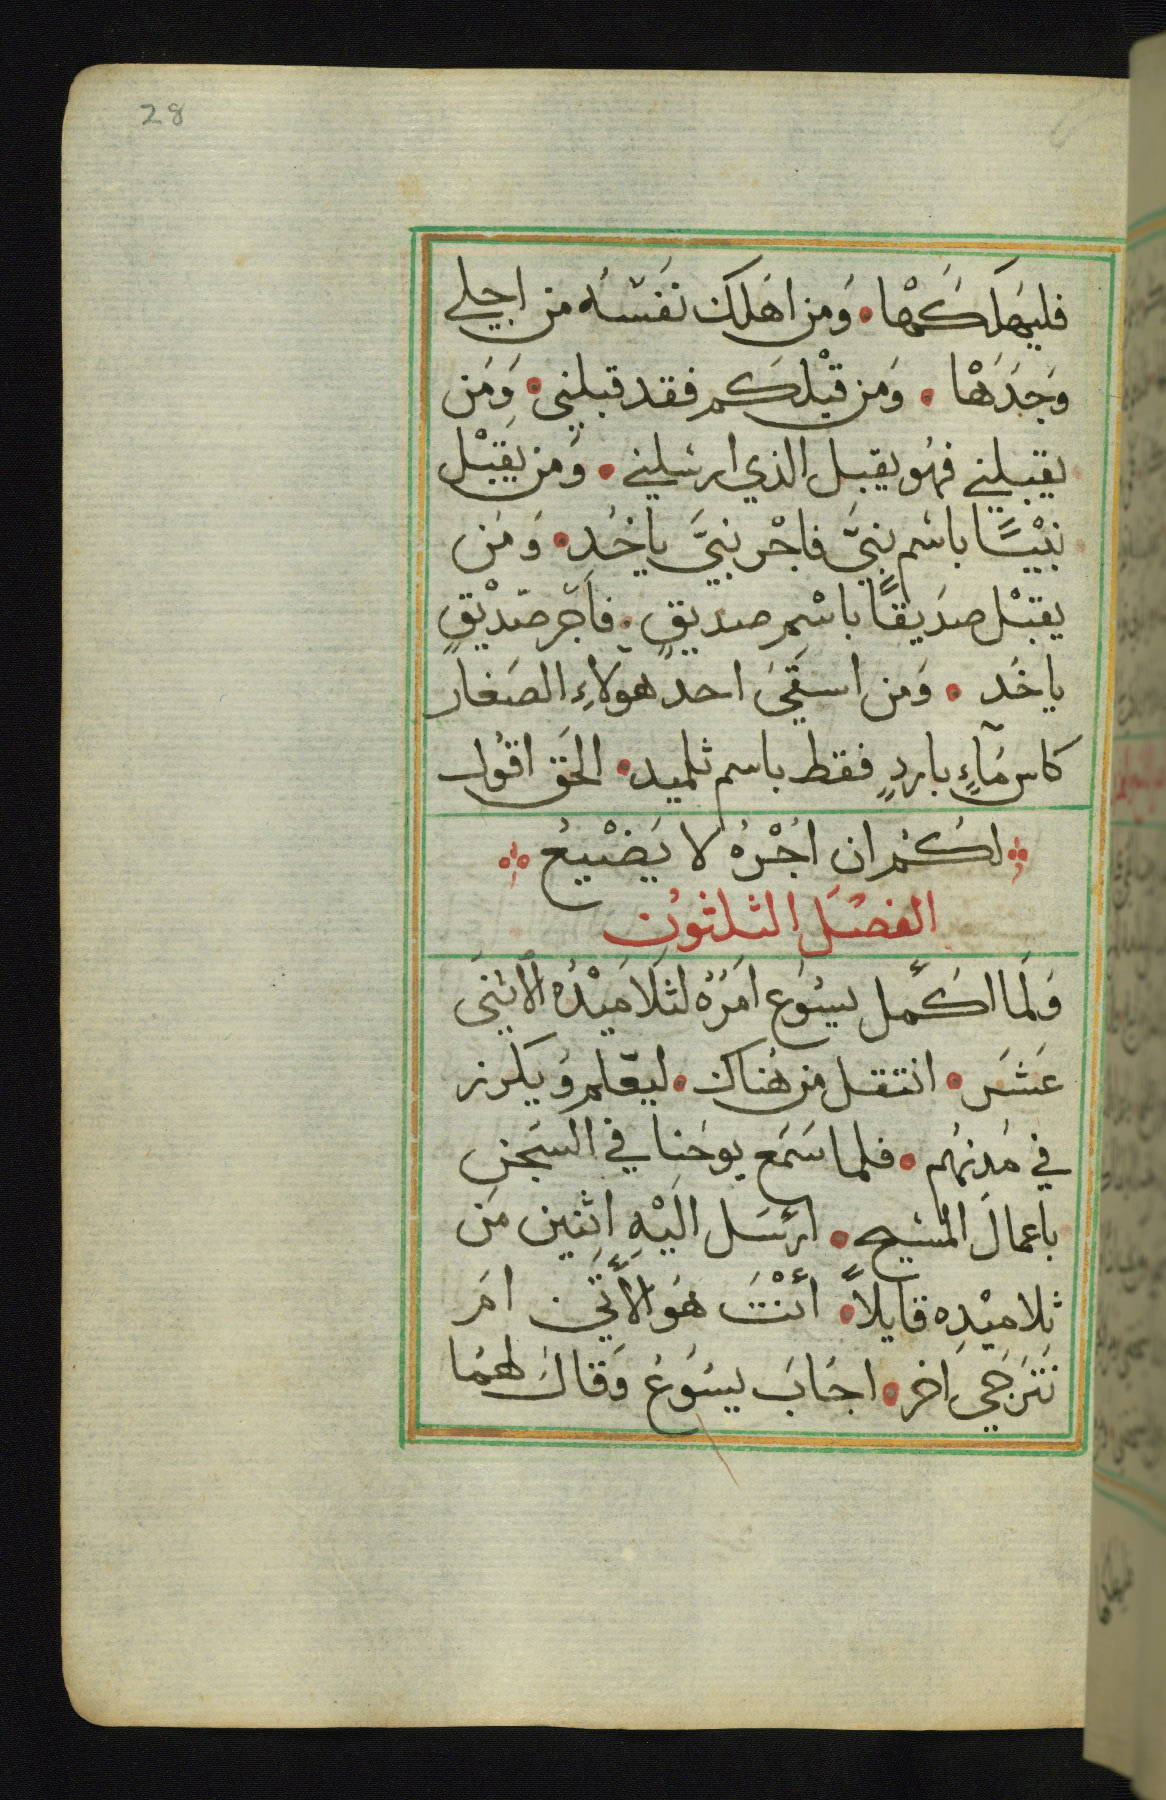 28
فليهلكها. وَمن اهَلك نَفسَه من اجلي
وَجَدَهْا. وَمن قبْلكَم فقد قبلني. وَمَن
يقبلني فهُو يقبل الذي ارسَلني. وَمن يقبَل
نبيْاً باسْم نبيَّ فاجْر نبيَّ ياخُد. وَمَن
يقبَل صدَيقاً باسْمِ صديقٍ. فاَجر صدْيقٍ
ياخَد. وَمن اسقَي احد هَولاءِ الصَغار
كاس مَآءٍ باردٍ فقط باسم ثلميد. الحَق اقوُل
لكُم ان اجُرْهُ لا يَضيْعُ
الفصَل الثلثون
وَلَما اكَمل يسُوَع امَرُه لثلاميْدُه الاثني
عَشَر. انتقل من هُناك. ليعَلم وَيكرز
في مُدنهُم. فلما سَمَع يوحَنا في السَجن
باعمالَ المسَيح. ارسَل الَيْهِ اثِنين مَن
ثلاميْدِه قايلاً. أنْتَ هَو الأتي امَ
نَترَجَي اخر. اجَابَ يسُوَعُ وَقالَ لهمُا